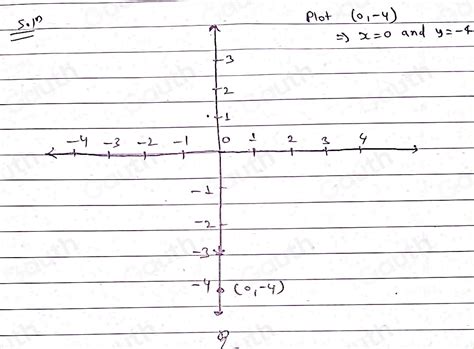 Solⁿ
Plot (0,-4)
⇒ x=0 and y=-4
3
2
1
-4 -3 -2 -1 0 1 2 3 4
-1
-2
-3
-4 (0,-4)